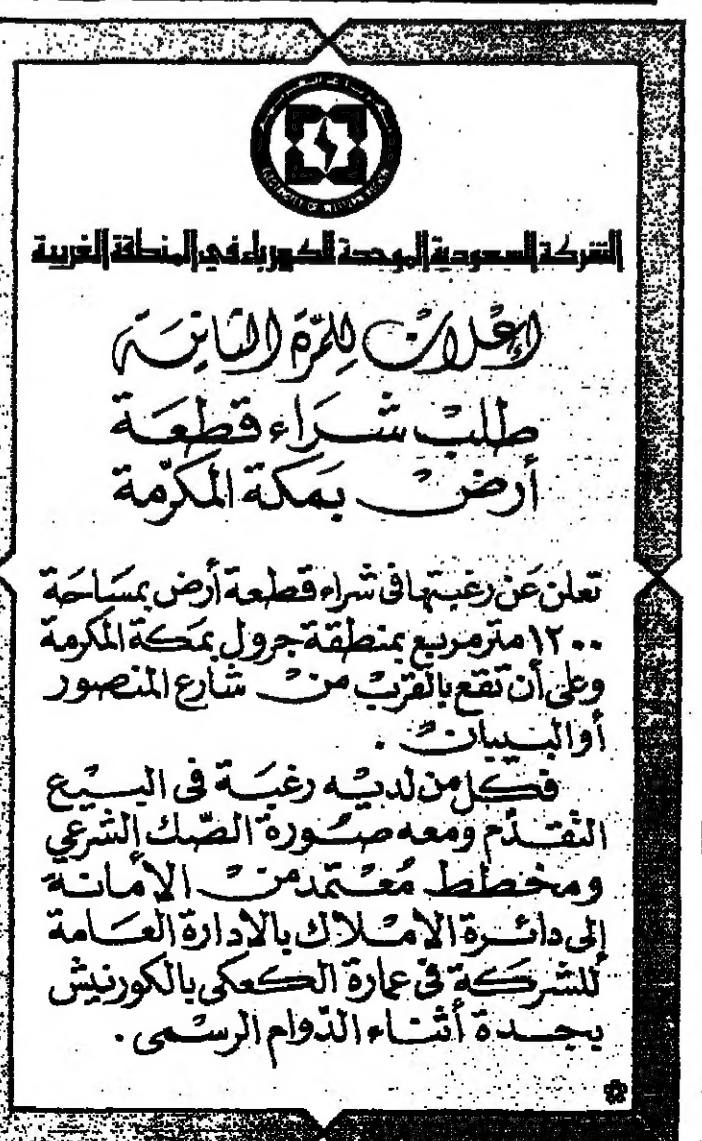 الشركة السعودية الموحدة للكهرباء في المنطقة الغربية
إعلان للمرّة الثانية
طلب شراء قطعة
أرض بمكة المكرّمة
تعلن عن رغبتها في شراء قطعة أرض بمساحة
١٢٠٠ متر مربع بمنطقة جرول بمكة المكرمة
وعلى أن تقع بالقرب من شارع المنصور
أو البيبان .
فكل من لديه رغبة في البيع
التقدّم ومعه صورة الصّك الشرعي
ومخطط مُعتمد من الأمانة
إلى دائرة الأملاك بالادارة العامة
للشركة في عمارة الكعكي بالكورنيش
بجدة أثناء الدّوام الرسمى .